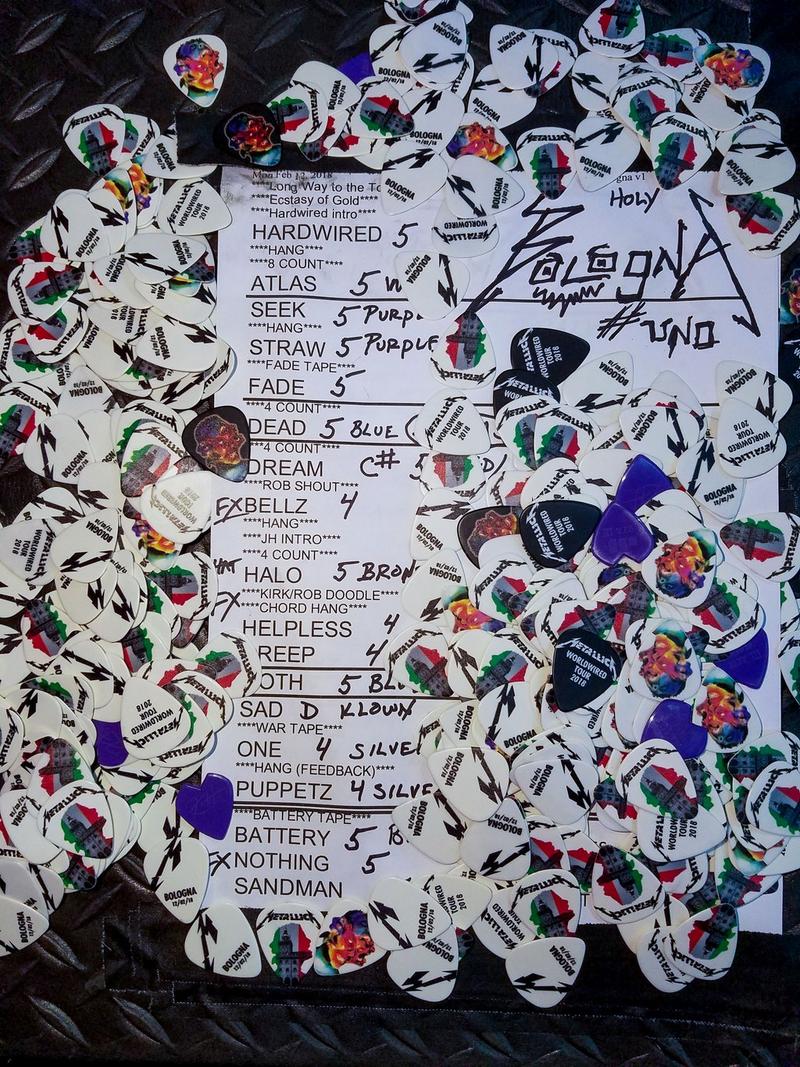 Mon Feb 12, 2018
gna v1
****Long Way to the To
****Ecstasy of Gold****
****Hardwired intro****
HOLY
BOLOGNA
#UNO
HARDWIRED 5
****HANG****
****8 COUNT****
ATLAS 5
SEEK 5 PURPL
****HANG****
STRAW 5 PURPLE
****FADE TAPE****
FADE 5
****4 COUNT****
DEAD 5 BLUE
****4 COUNT****
DREAM C# 5
****ROB SHOUT****
FX BELLZ 4
****HANG****
****JH INTRO****
****4 COUNT****
HALO 5 BRON
****KIRK/ROB DOODLE****
FX ****CHORD HANG****
HELPLESS 4
REEP 4
OTH 5 BL
SAD D KLOWN
****WAR TAPE****
ONE 4 SILVE
****HANG (FEEDBACK)****
PUPPETZ 4 SILVE
****BATTERY TAPE****
BATTERY 5 B
FX NOTHING 5
SANDMAN
METALLICA
WORLDWIRED
TOUR
2018
BOLOGNA
12/02/18